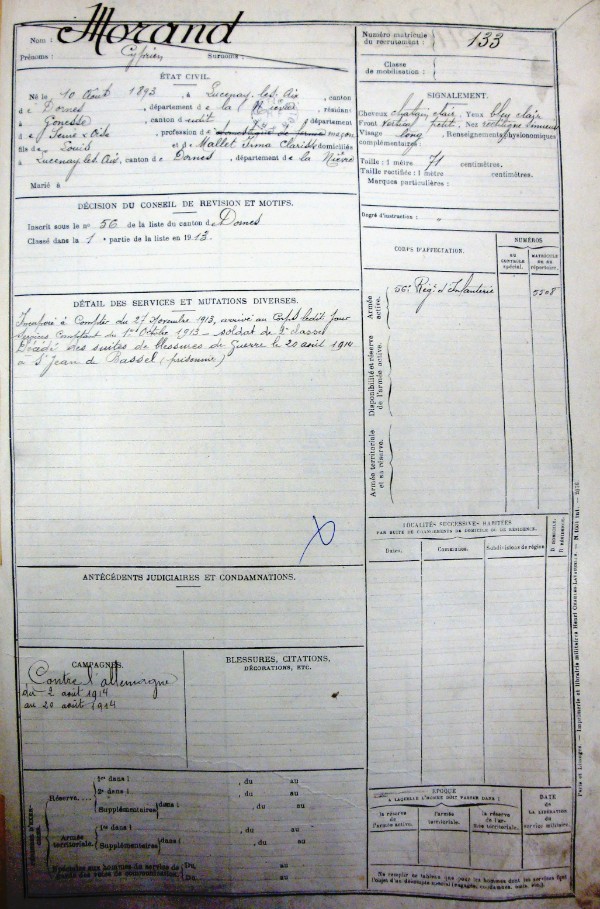 Nom : Morand
Prénoms : Cyprien Surnoms :
Numéro matricule du recrutement : 133
Classe de mobilisation :
ÉTAT CIVIL.
Né le 10 Août 1893, à Lucenay-les-Aix, canton
d e Dornes, département de la Nièvre, résidant
à Gonesse, canton d udit, département
d e Seine & Oise, profession de domestique de ferme maçon
fils de Louis et de Mallet Irma Clarisse domiciliés
à Lucenay les Aix, canton de Dornes, département de la Nièvre
Marié à
SIGNALEMENT.
Cheveux châtain clair, Yeux bleu clair
Front petit, Nez rectiligne
Visage long, Renseignements physionomiques
complémentaires :
Taille : 1 mètre 71 centimètres.
Taille rectifiée : 1 mètre centimètres.
Marques particulières :
Degré d'instruction :
DÉCISION DU CONSEIL DE RÉVISION ET MOTIFS.
Inscrit sous le n° 56 de la liste du canton d e Dornes
Classé dans la 1e partie de la liste en 1913.
CORPS D'AFFECTATION.
NUMÉROS
AU CONTRÔLE spécial.
MATRICULE OU AU répertoire.
Armée active.
56e Régt d'Infanterie 5508
Disponibilité et réserve de l'armée active.
Armée territoriale et sa réserve.
DÉTAIL DES SERVICES ET MUTATIONS DIVERSES.
Incorporé à Compter du 27 Novembre 1913, arrivé au Corps ledit jour
Services Comptant du 1er Octobre 1913 - soldat de 2e classe
Décédé des suites de blessures de Guerre le 20 août 1914
à St Jean de Bassel (prisonnier)
LOCALITÉS SUCCESSIVES HABITÉES
PAR SUITE DE CHANGEMENTS DE DOMICILE OU DE RÉSIDENCE.
Dates. Communes. Subdivisions de région D. DOMICILE. R. RÉSIDENCE.
ANTÉCÉDENTS JUDICIAIRES ET CONDAMNATIONS.
CAMPAGNES.
Contre l'allemagne
du 2 août 1914
au 20 août 1914
BLESSURES, CITATIONS,
DÉCORATIONS, ETC.
Réserve.... 1re dans l , du au
2e dans l , du au
Supplémentaires dans l , du au
Armée territoriale. 1re dans l , du au
Supplémentaires dans l , du au
Du au
Du au
ÉPOQUE
À LAQUELLE L'HOMME DOIT PASSER DANS :
la réserve de l'armée active.
l'armée territoriale.
la réserve de l'armée territoriale.
DATE
DE LA LIBÉRATION
du service militaire.
Paris et Limoges. — Imprimerie et librairie militaires Henri Charles-Lavauzelle.